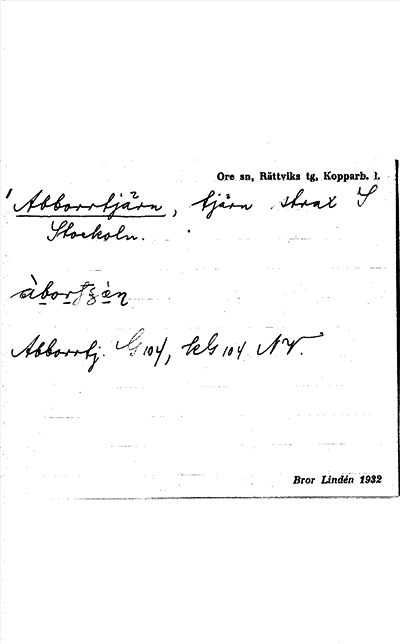 Ore sn, Rättviks tg, Kopparb. l.
Abborrtjärn, tjärn strax S
Stockoln.
Abborrtj. G104, kG 104 NV.
Bror Lindén 1932